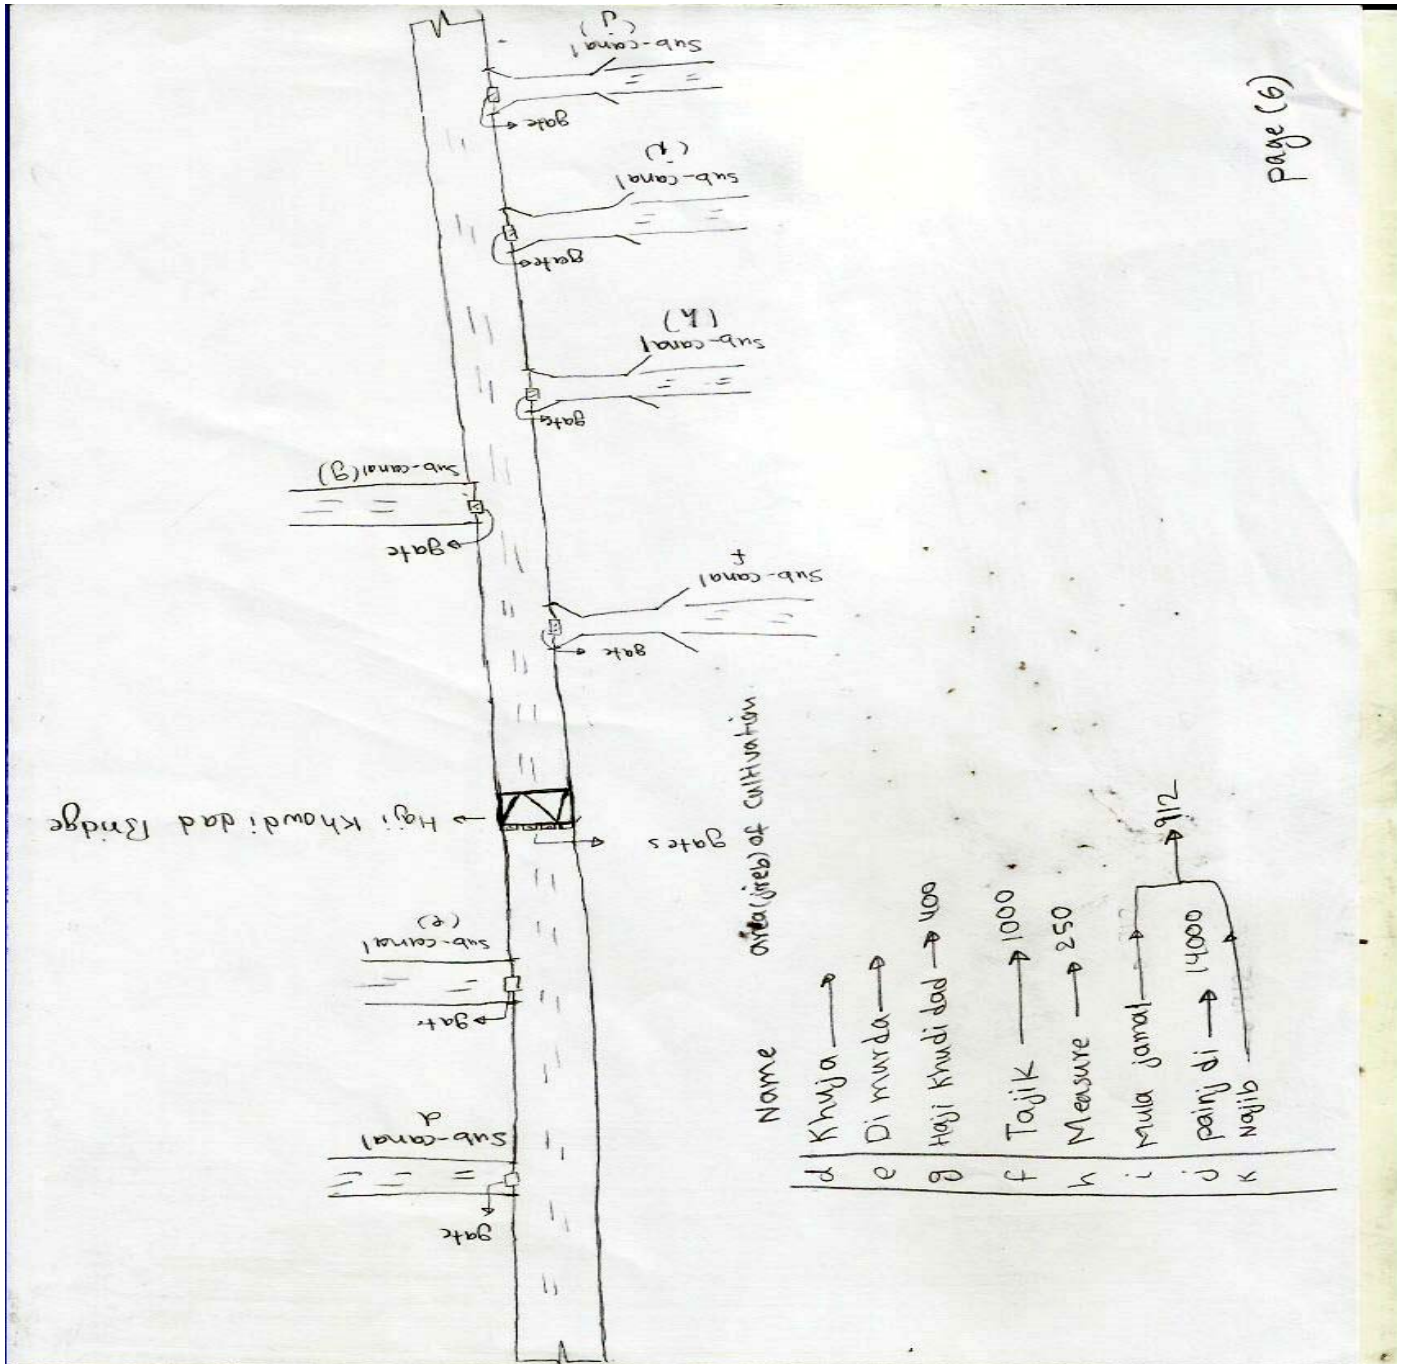 page (6)
Sub-canal
(j)
gate
sub-canal
(i)
gates
sub-canal
(h)
gate
Sub-canal(g)
gate
Sub-canal
f
gate
Haji Khowdidad Bridge
gates
sub-canal
(e)
gate
Sub-canal
d
gate
Name area(jreb) of cultivation
d Khuja
e Di murda
g Haji Khudidad 400
f Tajik 1000
h Measure 250
i Mula jamal
912
j painj di 14000
k Najib